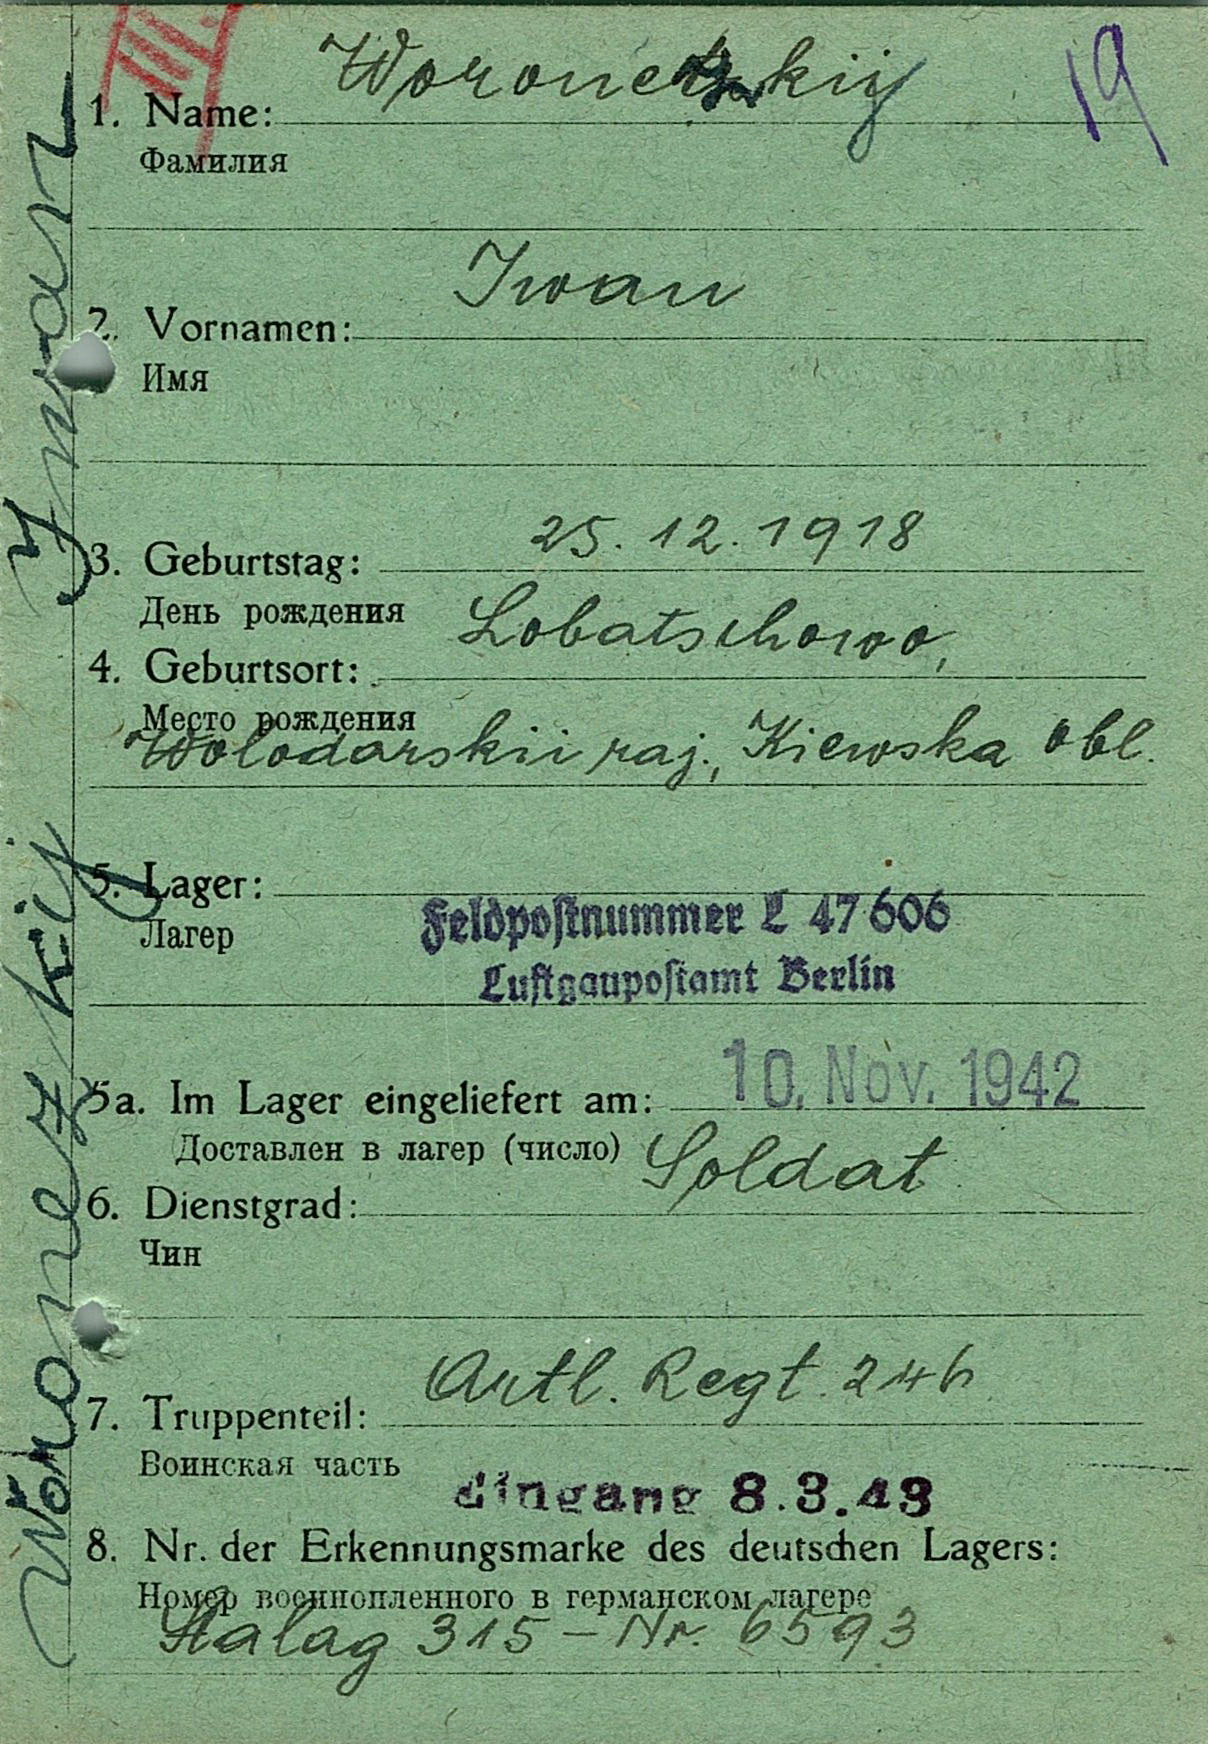 III
19
1. Name: Woronetzkij
Фамилия
2. Vornamen: Iwan
Имя
3. Geburtstag: 25. 12. 1918
День рождения
4. Geburtsort: Lobatschowo,
Место рождения
Wolodarskii raj., Kiewska obl.
5. Lager:
Лагер
Feldpostnummer L 47606
Luftgaupostamt Berlin
5a. Im Lager eingeliefert am: 10. Nov. 1942
Доставлен в лагер (число)
6. Dienstgrad: Soldat
Чин
7. Truppenteil: Artl. Regt. 246
Воинская часть
Eingang 8.3.43
8. Nr. der Erkennungsmarke des deutschen Lagers:
Номер военнопленного в германском лагере
Stalag 315 – Nr. 6593
Woronezkij Iwan